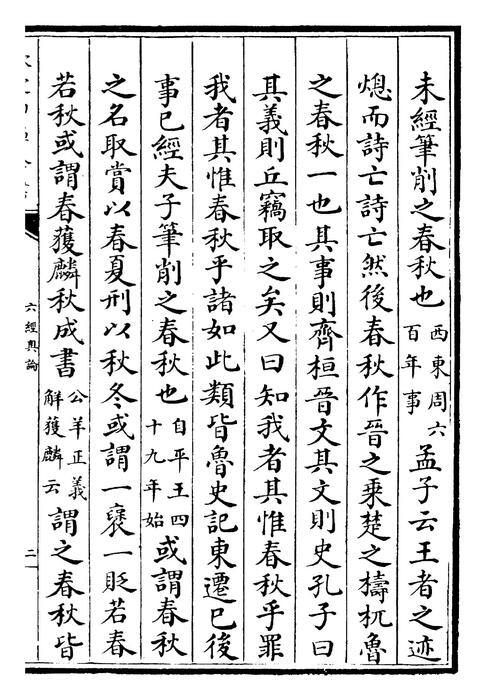 未經筆削之春秋也西東周六百年事孟子云王者之迹
熄而詩亡詩亡然後春秋作晉之乘楚之檮杌魯
之春秋一也其事則齊桓晉文其文則史孔子曰
其義則丘竊取之矣又曰知我者其惟春秋乎罪
我者其惟春秋乎諸如此類皆魯史記東遷已後
事已經夫子筆削之春秋也自平王四十九年始或謂春秋
之名取賞以春夏刑以秋冬或謂一褒一貶若春
若秋或謂春獲麟秋成書公羊正義解獲麟云謂之春秋皆
六經奧論
二